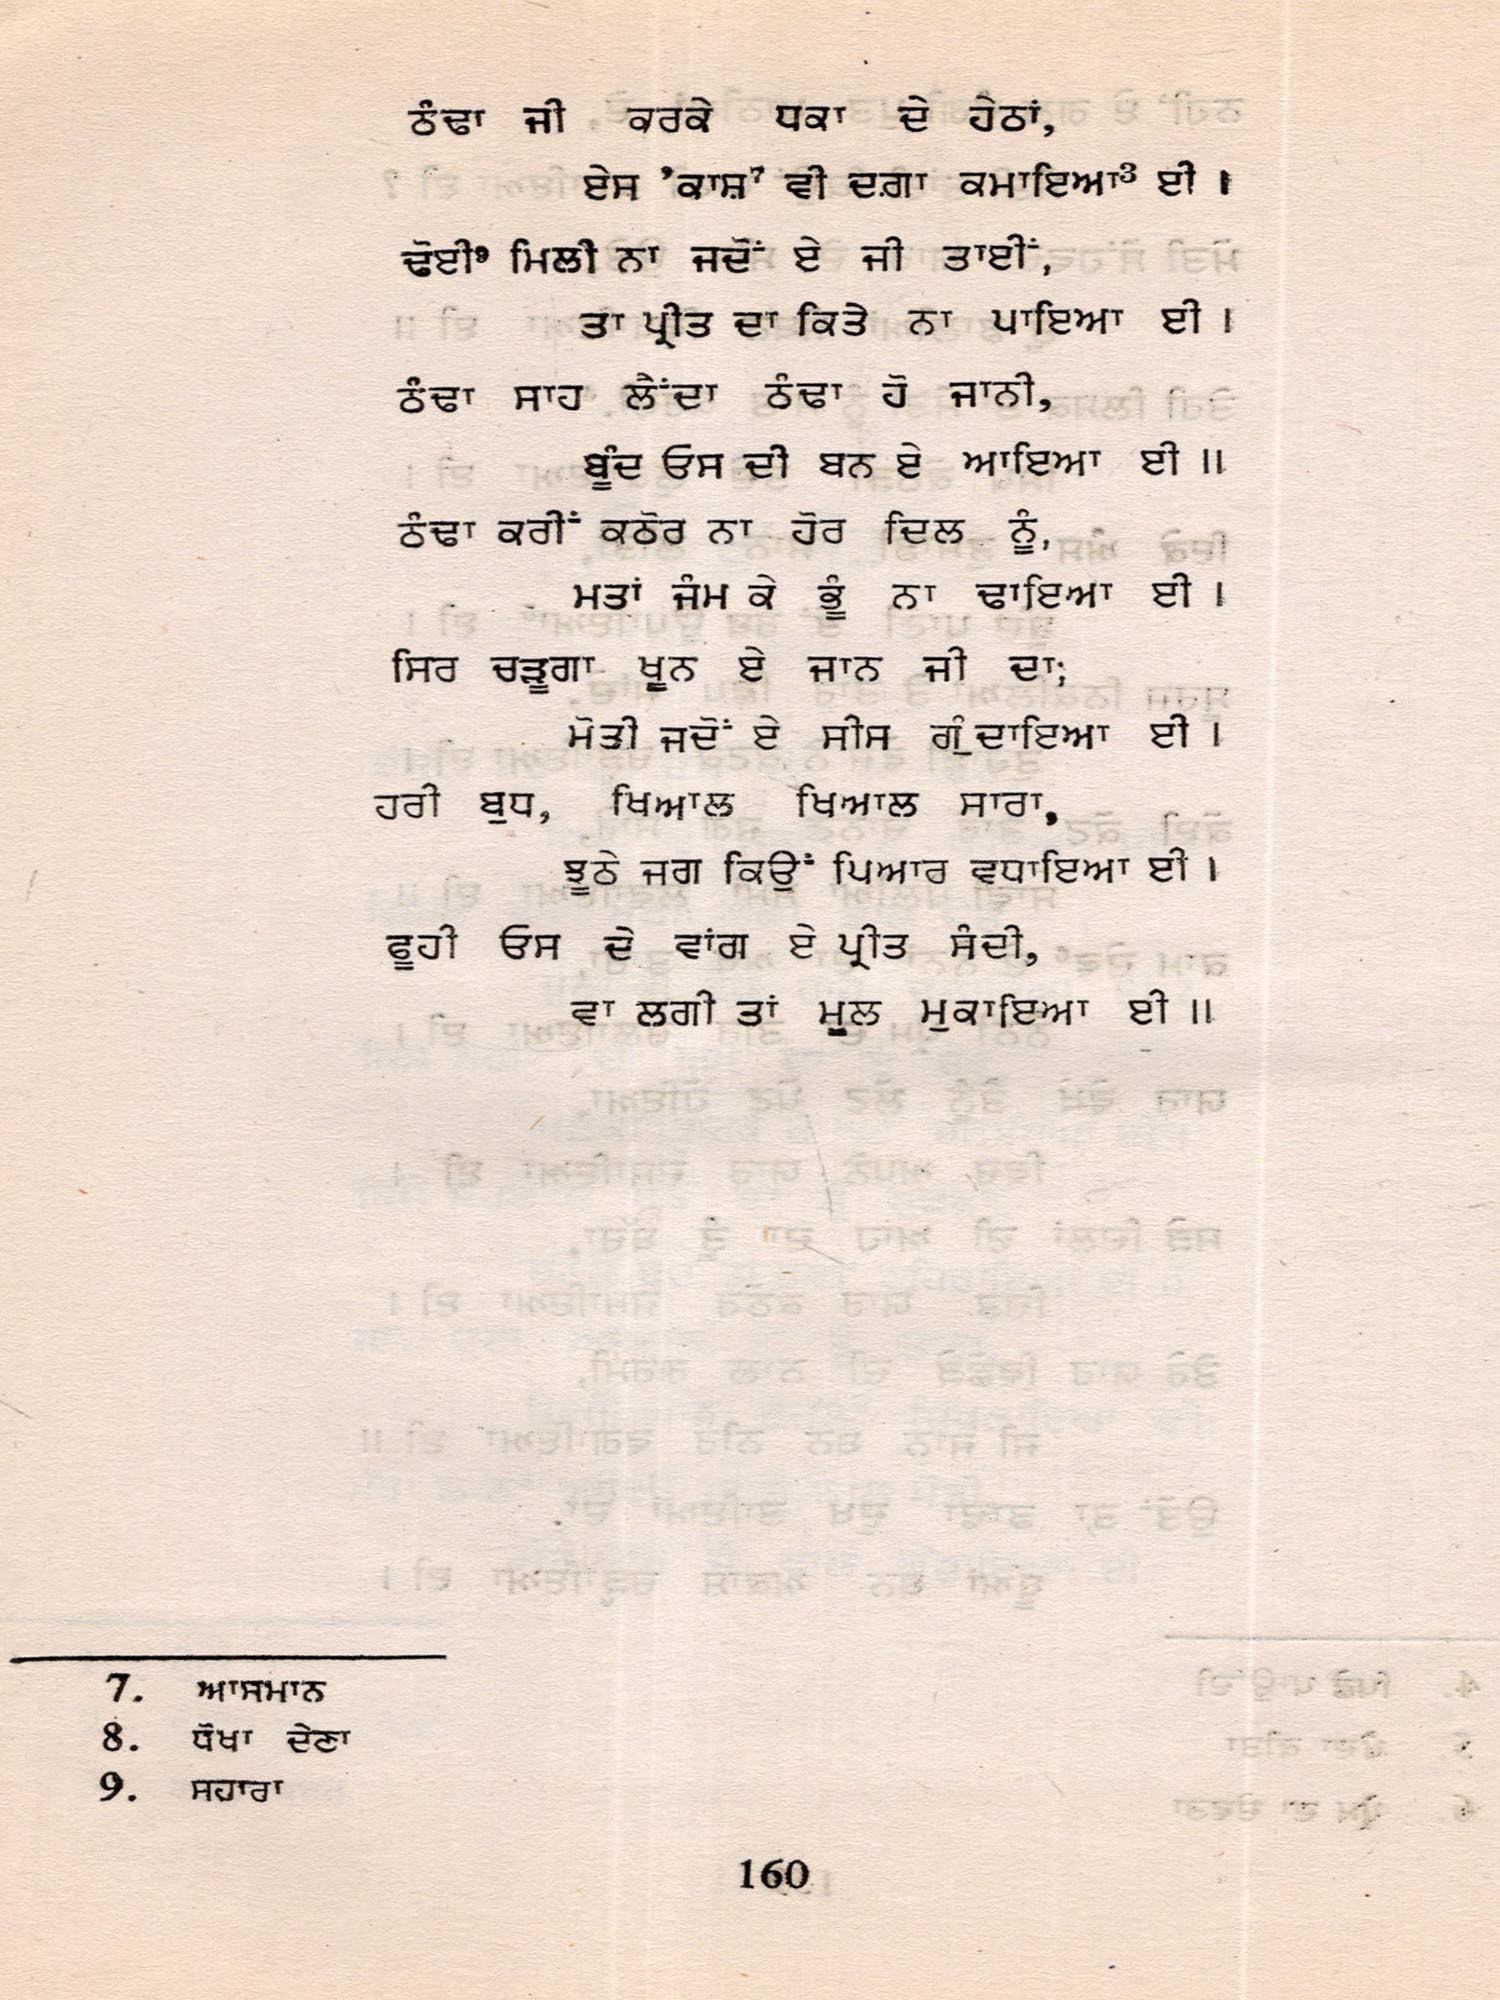 ਠੰਢਾ ਜੀ ਕਰਕੇ ਧਕਾ ਦੇ ਹੇਠਾਂ,
ਏਸ ’ਕਾਸ਼⁷ ਵੀ ਦਗ਼ਾ ਕਮਾਇਆ³ ਈ ।
ਢੋਈ⁹ ਮਿਲੀ ਨਾ ਜਦੋਂ ਏ ਜੀ ਤਾਈਂ,
ਤਾ ਪ੍ਰੀਤ ਦਾ ਕਿਤੇ ਨਾ ਪਾਇਆ ਈ ।
ਠੰਢਾ ਸਾਹ ਲੈਂਦਾ ਠੰਢਾ ਹੋ ਜਾਨੀ,
ਬੂੰਦ ਓਸ ਦੀ ਬਨ ਏ ਆਇਆ ਈ ॥
ਠੰਢਾ ਕਰੀਂ ਕਠੋਰ ਨਾ ਹੋਰ ਦਿਲ ਨੂੰ,
ਮਤਾਂ ਜੰਮ ਕੇ ਭੂੰ ਨਾ ਢਾਇਆ ਈ ।
ਸਿਰ ਚੜੂਗਾ ਖੂਨ ਏ ਜਾਨ ਜੀ ਦਾ;
ਮੋਤੀ ਜਦੋਂ ਏ ਸੀਸ ਗੁੰਦਾਇਆ ਈ ।
ਹਰੀ ਬੁਧ, ਖਿਆਲ ਖਿਆਲ ਸਾਰਾ,
ਝੂਠੇ ਜਗ ਕਿਉਂ ਪਿਆਰ ਵਧਾਇਆ ਈ ।
ਫੂਹੀ ਓਸ ਦੇ ਵਾਂਗ ਏ ਪ੍ਰੀਤ ਸੰਦੀ,
ਵਾ ਲਗੀ ਤਾਂ ਮੂਲ ਮੁਕਾਇਆ ਈ ॥
7. ਆਸਮਾਨ
8. ਧੋਖਾ ਦੇਣਾ
9. ਸਹਾਰਾ
160